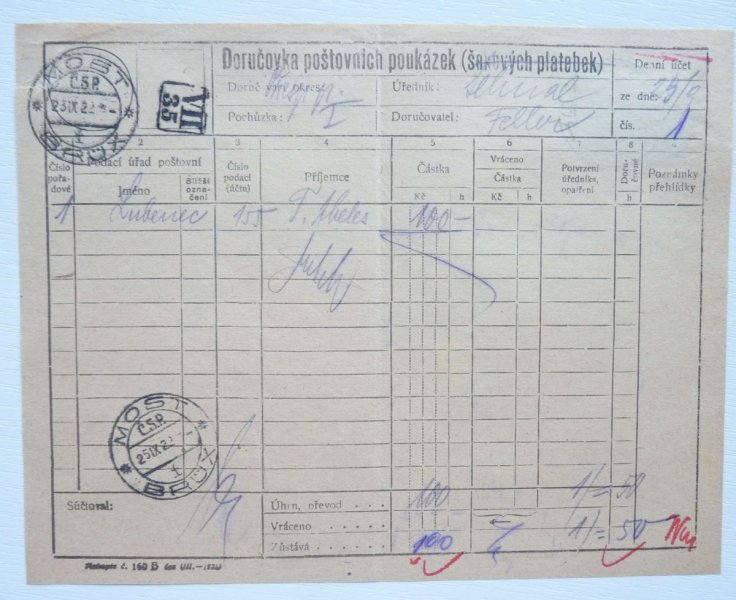 Doručovka poštovních poukázek (šekových platebek)
Denní účet
ze dne: 25/9
čís. 1
Doruč
okres:
I
Úředník:
Pochůzka:
Doručovatel:
MOST
Č.S.P.
BRÜX
VII
35
Číslo pořadové
2
Podací úřad poštovní
Jméno
Bližší označení
3
Číslo podací (účtu)
4
Příjemce
5
Částka
Kč h
6
Vráceno
Částka
Kč h
7
Potvrzení úředníka, opatření
8
Doručovné
h
9
Poznámky přehlídky
1 Lubenec 155 F. 100—
MOST
Č.S.P.
25 IX 22
1
BRÜX
Súčtoval:
Úhrn, převod . . . . 100 1/= 50
Vráceno . . . . .
Zůstává . . . . . 100 1/= 50
č. 160 B